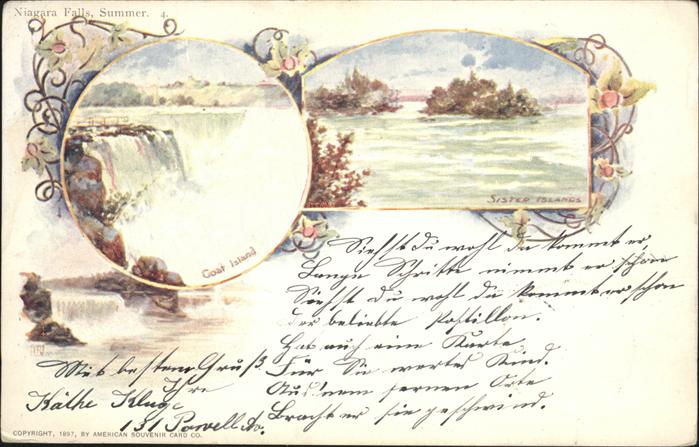 Niagara Falls, Summer. 4.
Goat Island
SISTER ISLANDS
Siehst du wohl da kommt er,
Lange Schritte nimmt er schon
Siehst du wohl da kommt er schon
der beliebte Postillon.
Hat auch eine Karte
Für Sie wertes Kind.
Aus'nem fernen Orte
Bracht er sie geschwind.
Mit bestem Gruß
Ihre
Käthe Kluge
131 Powell
COPYRIGHT, 1897, BY AMERICAN SOUVENIR CARD CO.